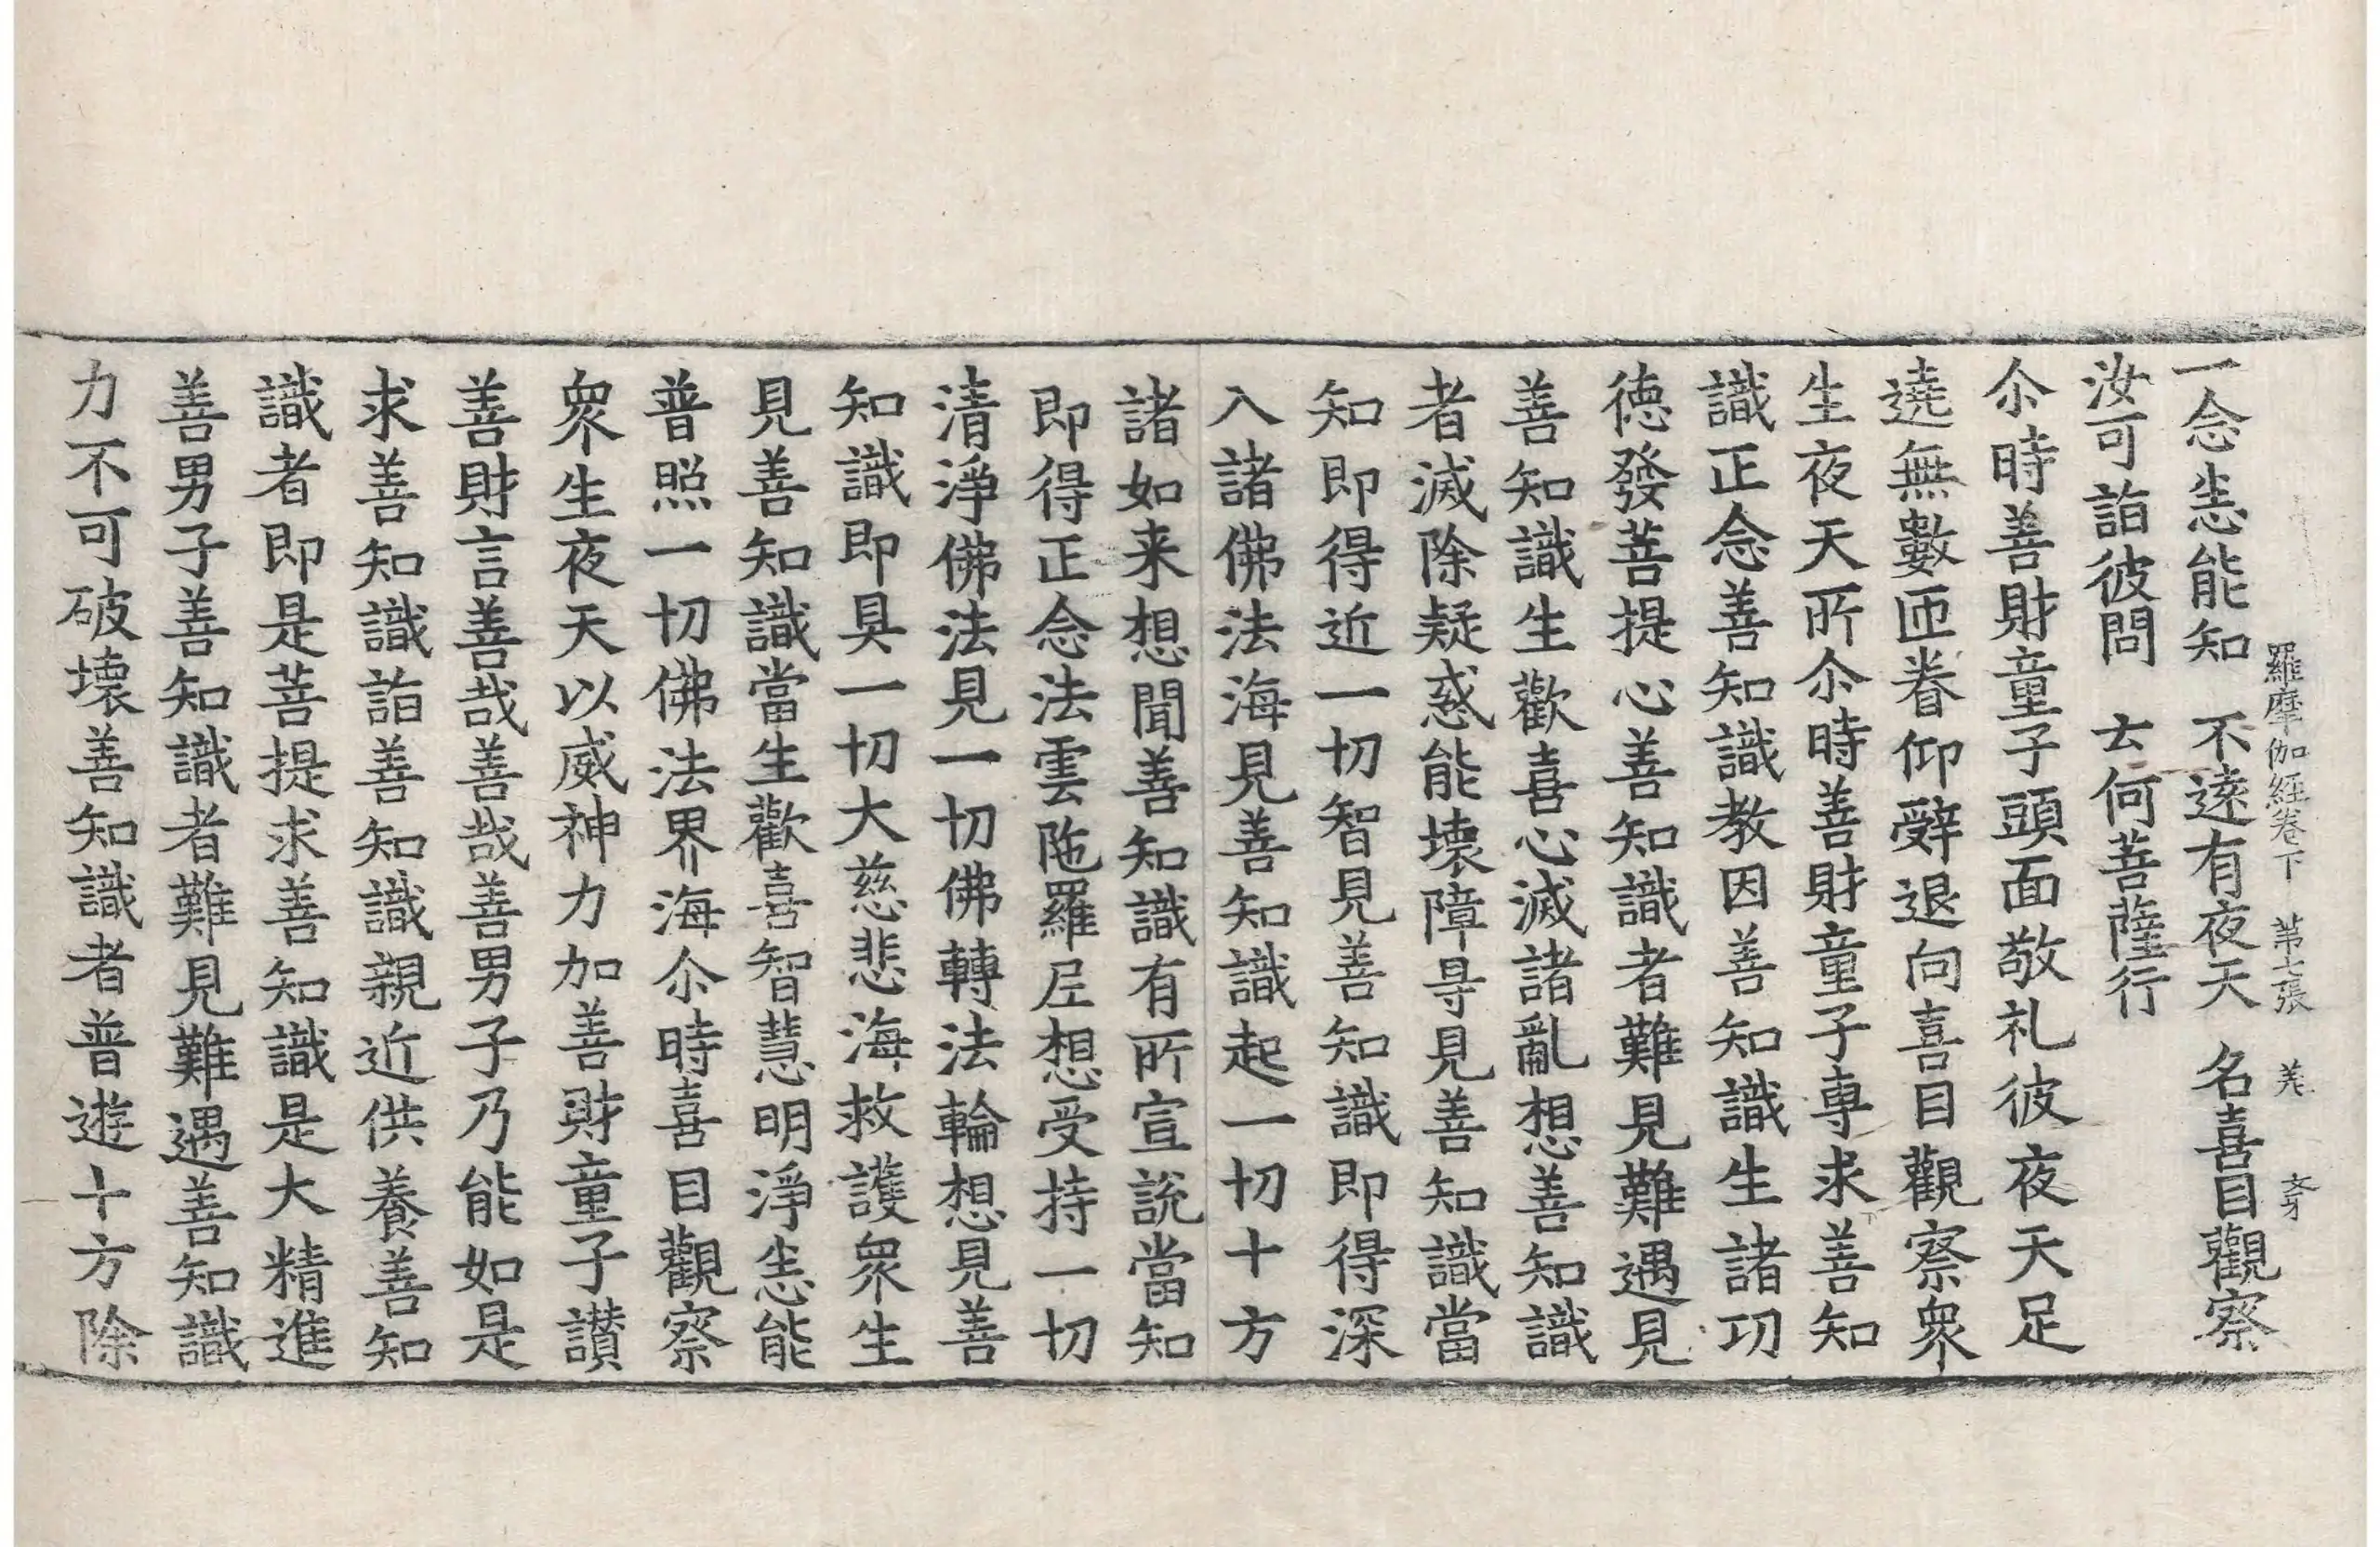 一念悉能知　不遠有夜天　名喜目觀察
汝可詣彼問　云何菩薩行
尒時善財童子頭面敬礼彼夜天足
遶無數匝眷仰辭退向喜目觀察衆
生夜天所尒時善財童子專求善知
識正念善知識教因善知識生諸功
德發菩提心善知識者難見難遇見
善知識生歡喜心滅諸亂想善知識
者滅除疑惑能壞障㝵見善知識當
知即得近一切智見善知識即得深
入諸佛法海見善知識起一切十方
諸如来想聞善知識有所宣說當知
即得正念法雲陁羅尼想受持一切
清淨佛法見一切佛轉法輪想見善
知識即具一切大慈悲海救護衆生
見善知識當生歡喜智慧明淨悉能
普照一切佛法界海尒時喜目觀察
衆生夜天以威神力加善財童子讃
善財言善哉善哉善男子乃能如是
求善知識詣善知識親近供養善知
識者即是菩提求善知識是大精進
善男子善知識者難見難遇善知識
力不可破壞善知識者普遊十方除
羅摩伽經卷下　苐七張